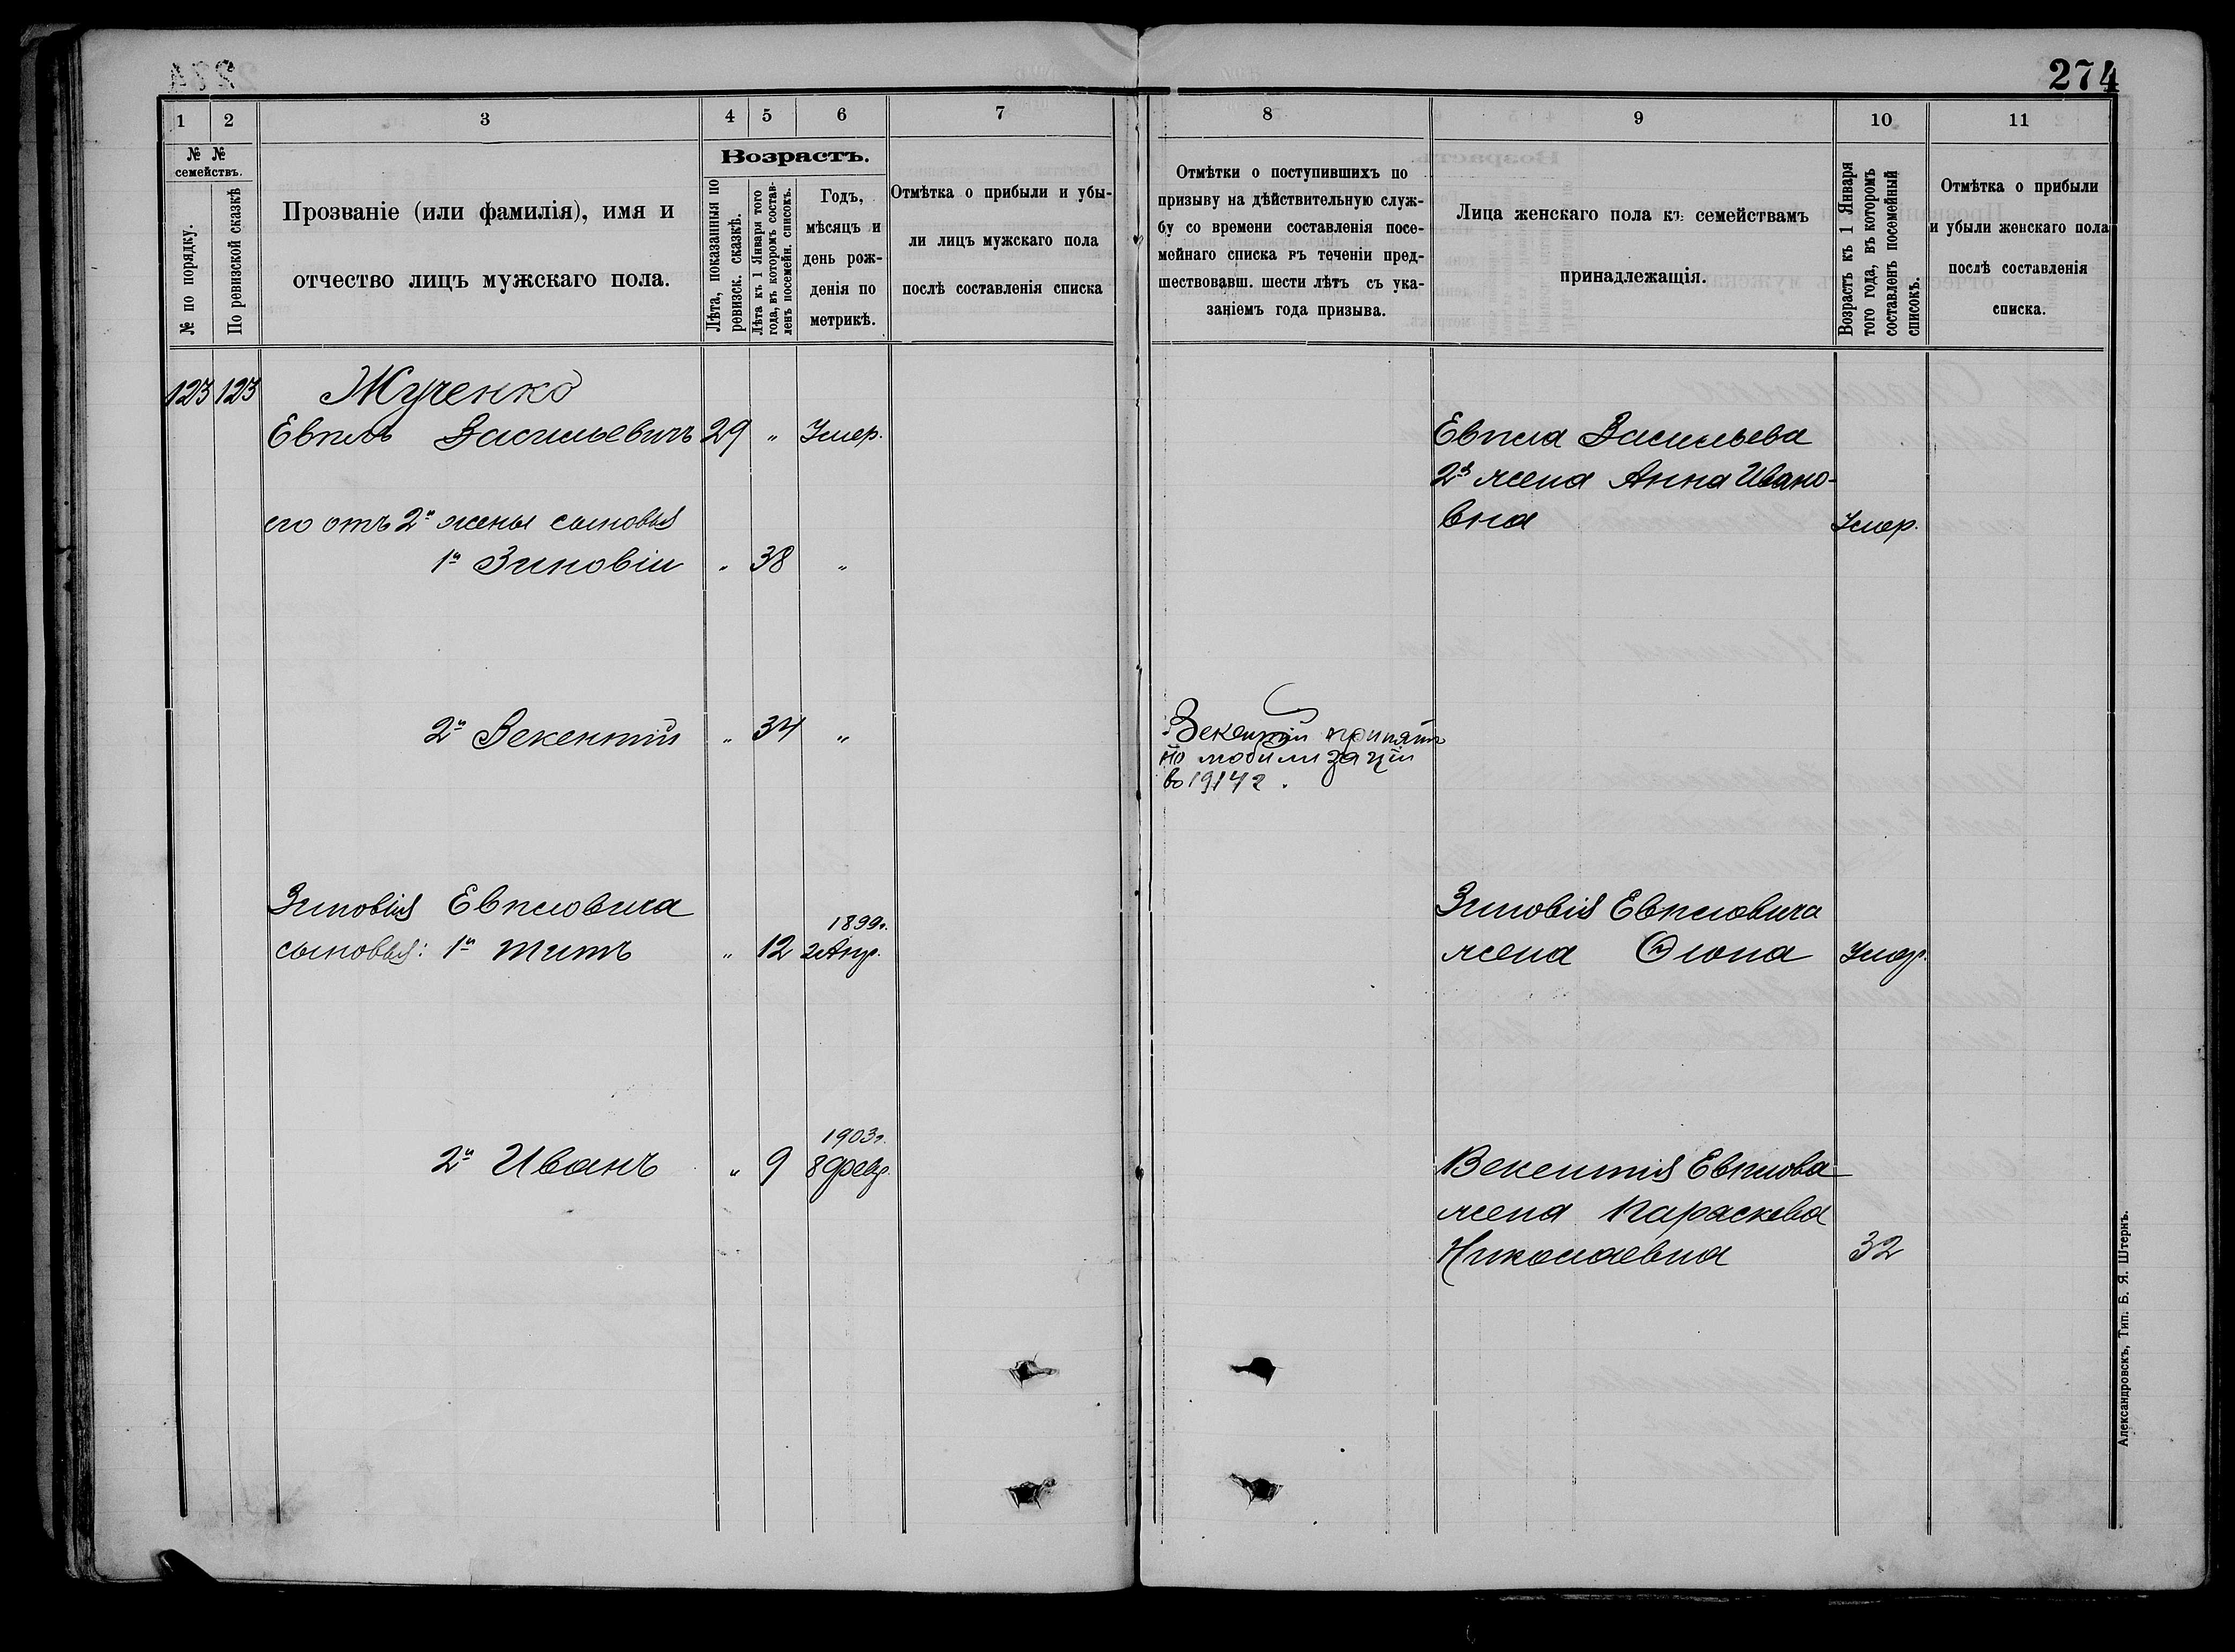 274
1
2
3
4
5
6
7
№ №
семействъ.
№ по порядку.
По ревизской сказкѣ
Прозваніе (или фамилія), имя и
отчество лицъ мужскаго пола.
Возрастъ.
Лѣта, показанныя по
ревизск. сказкѣ.
Лѣта къ 1 Января того
года, въ которомъ состав-
ленъ посемейн. списокъ.
Годъ,
мѣсяцъ и
день рож-
денія по
метрикѣ.
Отмѣтка о прибыли и убы-
ли лицъ мужскаго пола
послѣ составленія списка
123 123 Жученко
Евпла Васильевичъ 29 " Умер.
его отъ 2й жены сыновья
1й Зиновій " 38 "
2й Векентій " 34 "
Зиновія Евпловича
1899г.
сыновья: 1й Титъ " 12 2 Апр.
1903г.
2й Иванъ " 9 8 февр.
8
9
10
11
Отмѣтки о поступившихъ по
призыву на дѣйствительную служ-
бу со времени составленія посе-
мейнаго списка въ теченіи пред-
шествовавш. шести лѣтъ съ ука-
заніемъ года призыва.
Лица женскаго пола къ семействамъ
принадлежащія.
Возрастъ къ 1 Января
того года, въ которомъ
составленъ посемейный
списокъ.
Отмѣтка о прибыли
и убыли женскаго пола
послѣ составленія
списка.
Евпла Васильева
2я жена Анна Ивано-
вна Умер.
Векентій принятъ
по мобилизаціи
въ 1914 г.
Зиновія Евпловича
жена Ѳіона Умер.
Векентія Евплова
жена Параскева
Николаевна 32
Александровскъ, Тип. Б. Я. Штернъ.